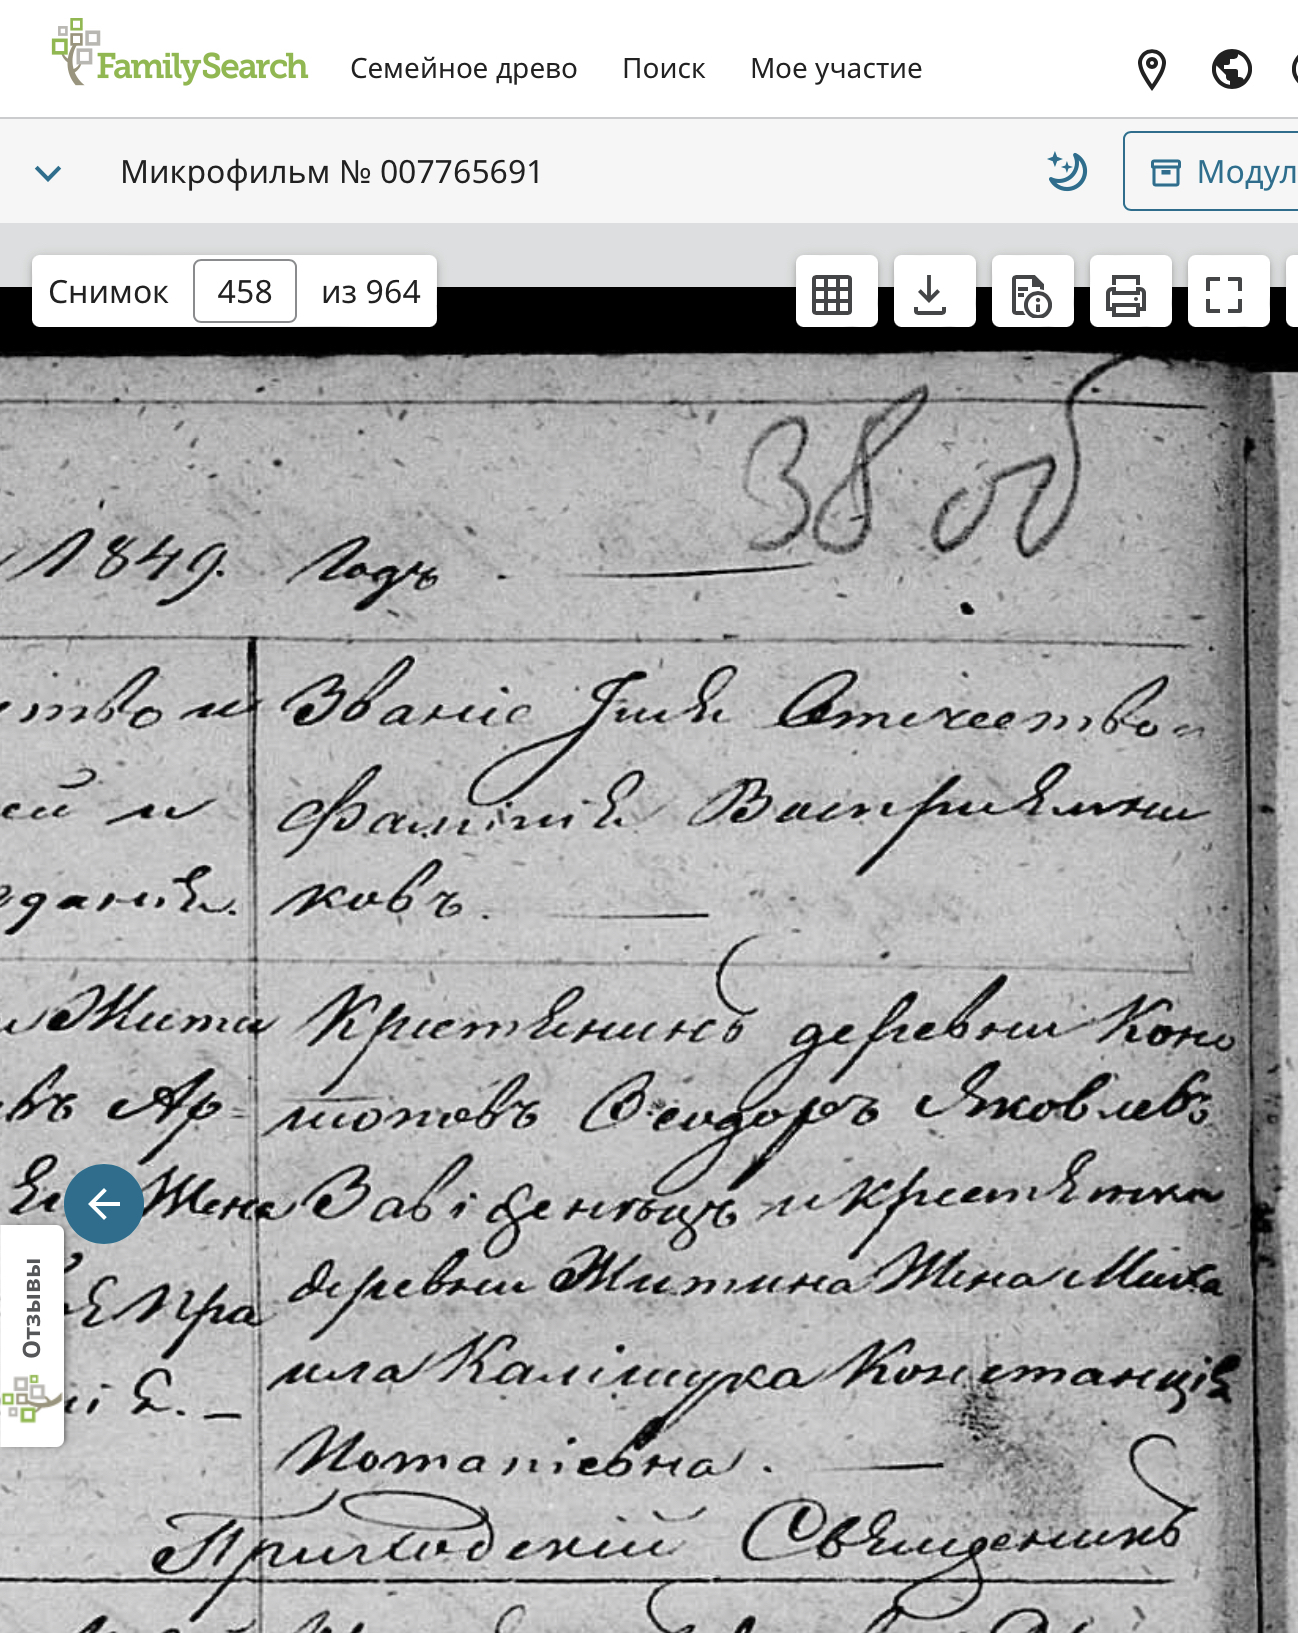 FamilySearch
Семейное древо Поиск Мое участие
Микрофильм № 007765691
Модул
Снимок 458 из 964
38 об
1849. Годъ.
ство и
Званіе Имя Отечество и
ей и
фамилія Воспріемни
ковъ.
Жити
Крестьянинъ деревни Коно
въ Ар-
топовъ Ѳеодоръ Яковлевъ
Жена
и крестьянка
деревни Житина Жена Миха
Пра
ила Калішука Констанція
Потапіевна.
Приходскій Священикъ
Отзывы